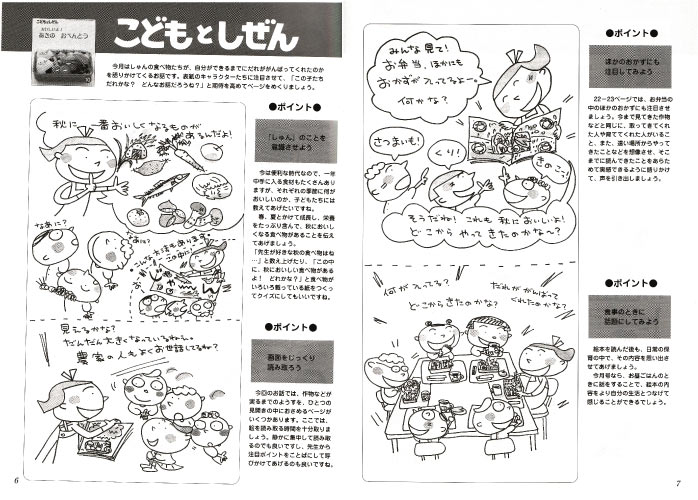 こどもとしぜん
おいしいよ！
あきの おべんとう
こどもとしぜん
今月はしゅんの食べ物たちが、自分ができるまでにだれががんばってくれたのか
を語りかけてくるお話です。表紙のキャラクターたちに注目させて、「この子たち
だれかな？ どんなお話だろうね？」と期待を高めてページをめくりましょう。
秋に一番おいしくなるものが
あるんだよ！
なあに？
あに？
見えるかな？
だんだん大きくなっているねぇ。
農家の人もよくお世話してるね？
●ポイント●
「しゅん」のことを
意識させよう
今は便利な時代なので、一年
中手に入る食材もたくさんあり
ますが、それぞれの季節に何が
おいしいのか、子どもたちには
教えてあげたいですね。
春、夏とかけて成長し、栄養
をたっぷり含んで、秋においし
くなる食べ物があることを伝え
てあげましょう。
「先生が好きな秋の食べ物はね
…」と数え上げたり、「この中
に、秋においしい食べ物がある
よ！ どれかな？」と食べ物が
いろいろ載っている紙をつくっ
てクイズにしてもいいですね。
●ポイント●
画面をじっくり
読み取ろう
今回のお話では、作物などが
実るまでのようすを、ひとつの
見開きの中におさめるページが
いくつかあります。ここでは、
絵を読み取る時間を十分取りま
しょう。静かに集中して読み取
るのでも良いですし、先生から
注目ポイントをことばにして呼
びかけてあげるのも良いですね。
6
みんな見て！
お弁当、ほかにも
おかずが入ってるよー。
何かな？
さつまいも！
くり！
きのこ！
そうだね！ これも秋においしいよ！
どこから やって きたのかな〜？
何が入ってる？
どこからきたのかな？
だれががんばって
くれたのかな？
●ポイント●
ほかのおかずにも
注目してみよう
22〜23ページでは、お弁当の
中のほかのおかずにも注目させ
ましょう。今まで見てきた作物
などと同じに、取ってきてくれ
た人や育ててくれた人がいるこ
と、また、遠い場所からやって
きたことなどを想像させ、そこ
までに読んできたことをあらた
めて実感できるように語りかけ
て、声を引き出しましょう。
●ポイント●
食事のときに
話題にしてみよう
絵本を読んだ後も、日常の保
育の中で、その内容を思い出さ
せてあげましょう。
今月号なら、お昼ごはんのと
きに話をすることで、絵本の内
容をより自分の生活とつなげて
感じることができるでしょう。
7